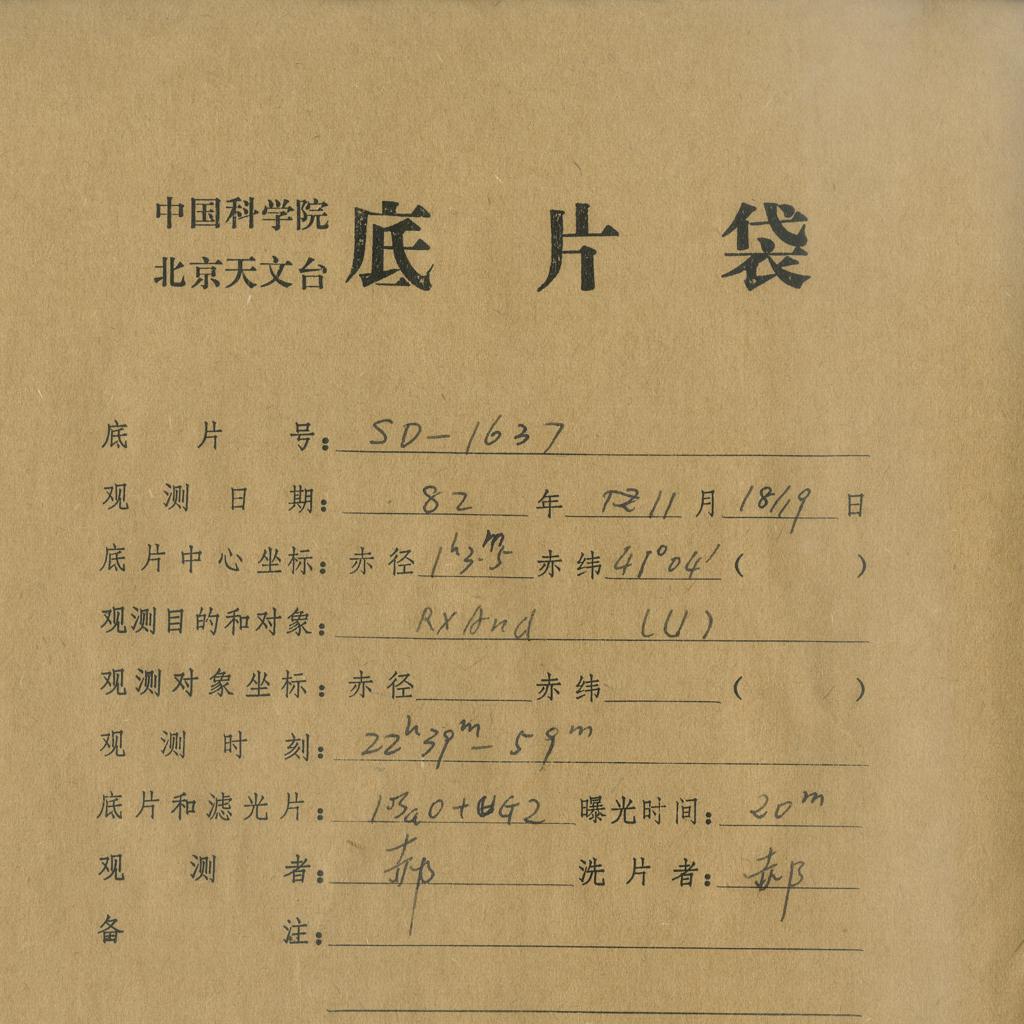 中国科学院
北京天文台
底片袋
底片号：SD-1637
观测日期：82年 11月18/19日
底片中心坐标：赤径1ʰ3.ᵐ5赤纬41°04′（ ）
观测目的和对象：RX And (U)
观测对象坐标：赤径 赤纬 （ ）
观测时刻：22ʰ39ᵐ-59ᵐ
底片和滤光片：103aO+UG2 曝光时间：20ᵐ
观测者：郝 洗片者：郝
备注：